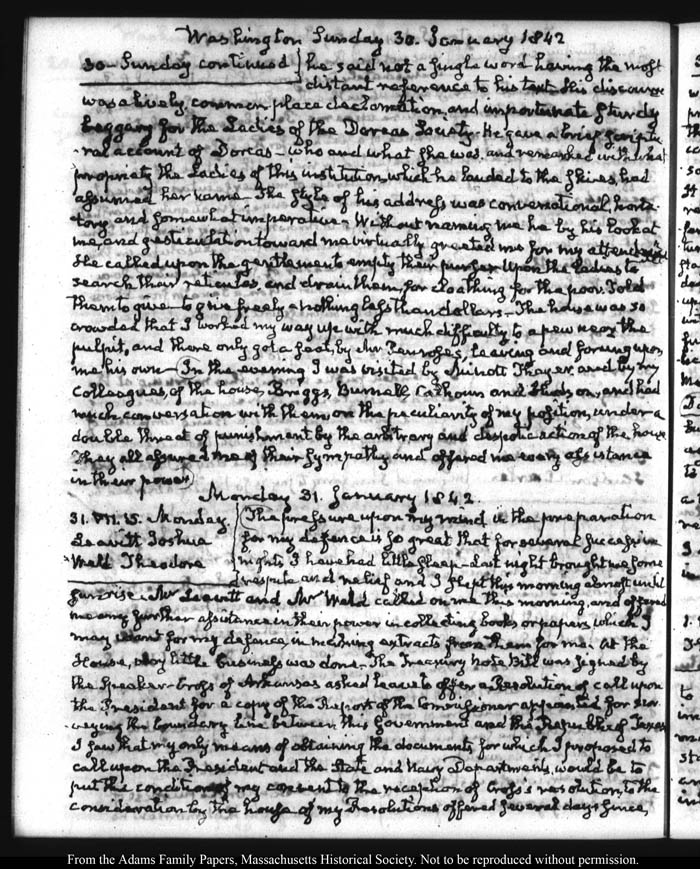 Washington Sunday 30. January 1842
30 - Sunday continued } he said not a single word having the most
distant reference to his text. His discourse
was a lively, common place declamation, and importunate sturdy
beggary for the Ladies of the Dorcas Society. He gave a brief scriptu-
-ral account of Dorcas - who and what she was, and remarked with what
propriety the Ladies of this institution, which he lauded to the skies, had
assumed her name - The style of his address was conversational, horta-
-tory, and somewhat imperative - Without naming me he by his look at
me, and gesticulation toward me virtually greeted me for my attendance
He called upon the gentlemen to empty their purses Upon the Ladies to
search their reticules, and drain them, for cloathing for the poor. Told
them to give - to give freely - nothing less than dollars - The house was so
crowded that I worked my way up with much difficulty to a pew near the
pulpit, and there only got a seat, by Mr leaving and forcing upon
me his own - In the evening I was visited by Minott Thayer, and by my
Colleagues, of the house, Briggs, Burnell Calhoun and Hudson, and had
much conversation with them, on the peculiarity of my position, under a
double threat of punishment by the arbitrary and despotic action of the house
They all assured me of their sympathy and offered me every assistance
in their power)
Monday 31. January 1842.
31. VII. 15. Monday
Leavitt Joshua
Weld Theodore
(The pressure upon my mind in the preparation
for my defence is so great that for several successive
nights I have had little sleep - Last night brought me some
respite and relief and I slept this morning almost until
sunrise. Mr Leavitt and Mr Weld called on me this morning, and offered
me any further assistance in their power in collecting books or papers which I
may want for my defence, in making extracts from them for me. At the
House, very little business was done - The Treasury Note Bill was signed by
the Speaker - Cross of Arkansas asked leave to offer a Resolution of call upon
the President for a copy of the Report of the Commissioner appointed for sur-
veying the boundary line between this Government and the Republic of Texas
I saw that my only means of obtaining the documents for which I proposed to
call upon the President and the State and Navy Departments, would be to
put the condition of my consent to the reception of Cross's resolution, to the
consideration by the house of my Resolutions offered several days since,
From the Adams Family Papers, Massachusetts Historical Society. Not to be reproduced without permission.